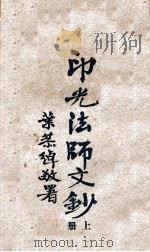 印光法師文鈔
上册
葉恭綽敬署